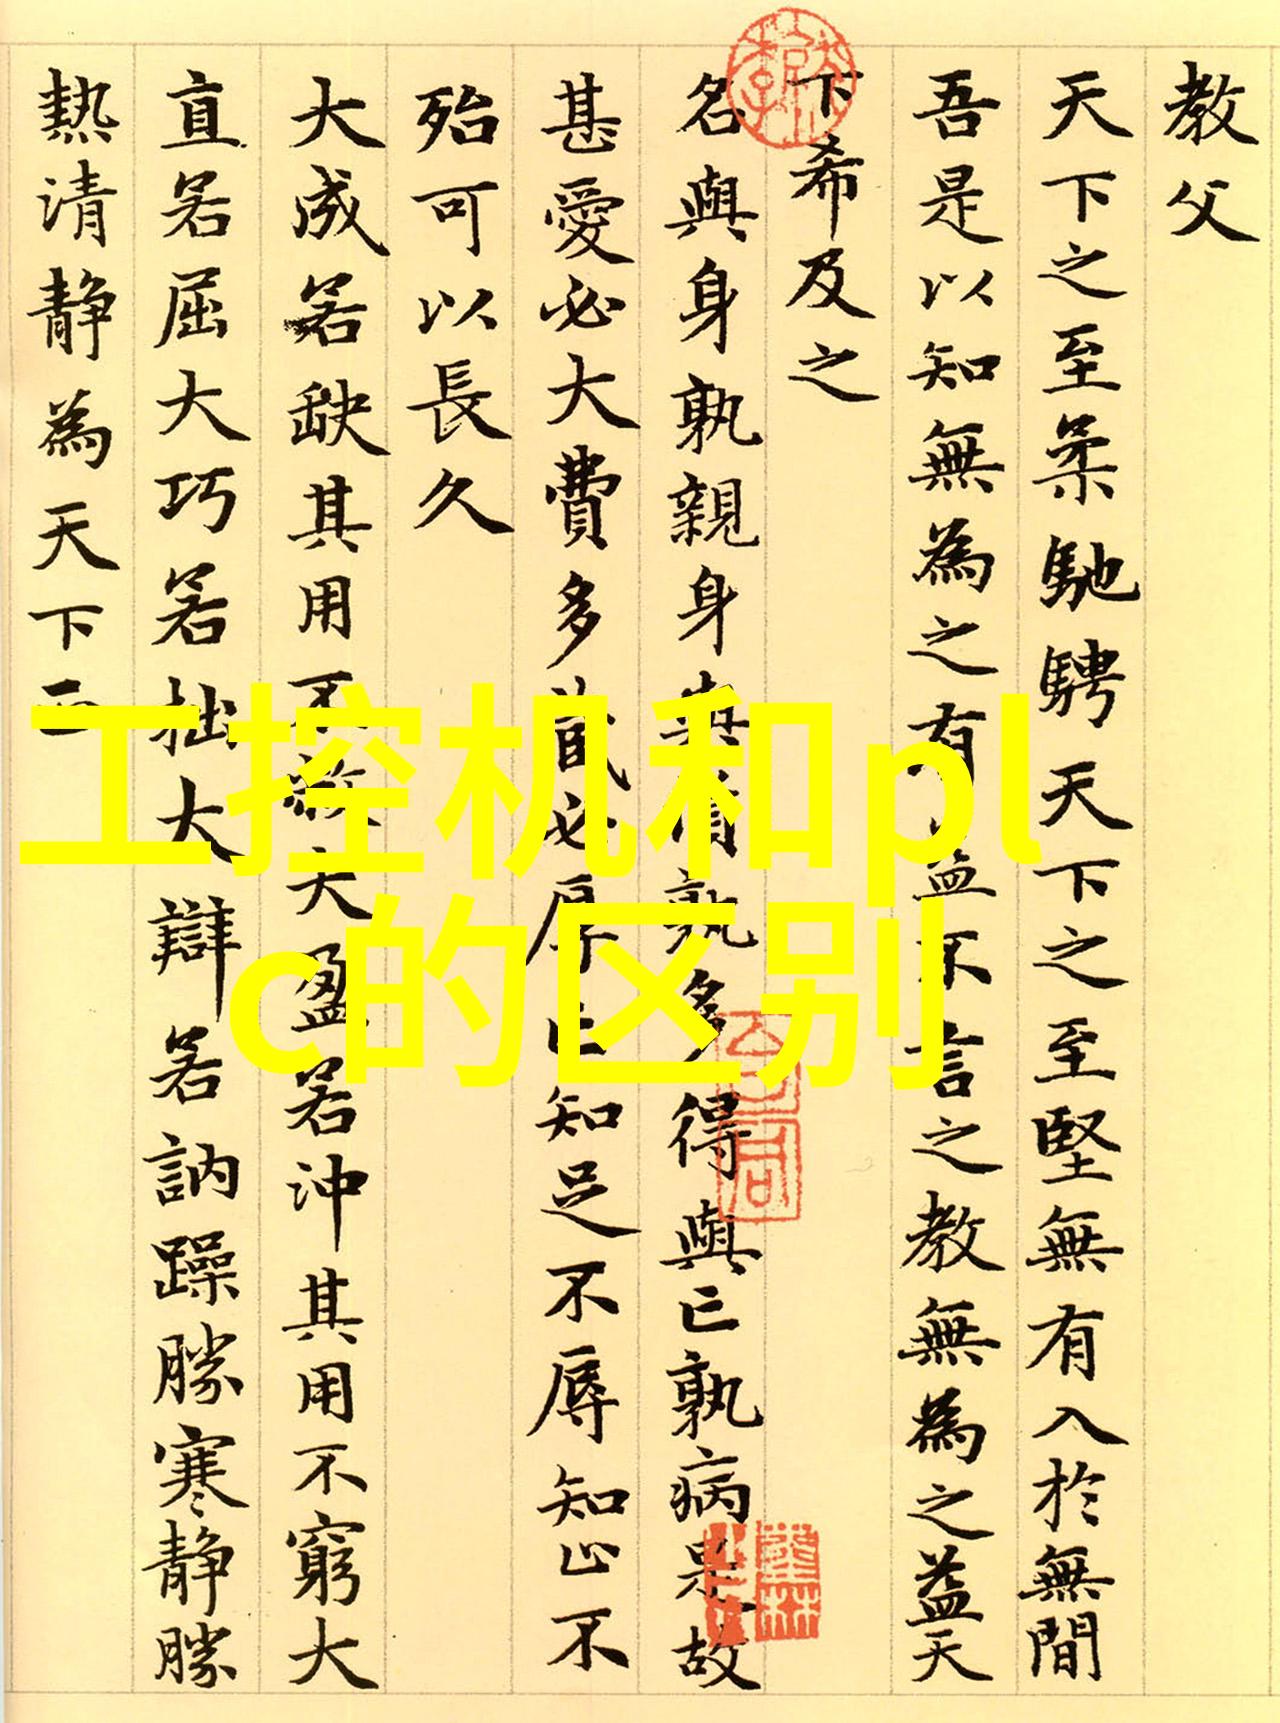 教父
天下之至柔馳騁天下之至堅無有入於無間
吾是以知無為之有益不言之教無為之益天
下希及之
名與身孰親身與貨孰多得與亡孰病是故
甚愛必大費多藏必厚亡知足不辱知止不
殆可以長久
大成若缺其用不弊大盈若沖其用不窮大
直若屈大巧若拙大辯若訥躁勝寒靜勝
熱清靜為天下正
工控机和pl
c的区别